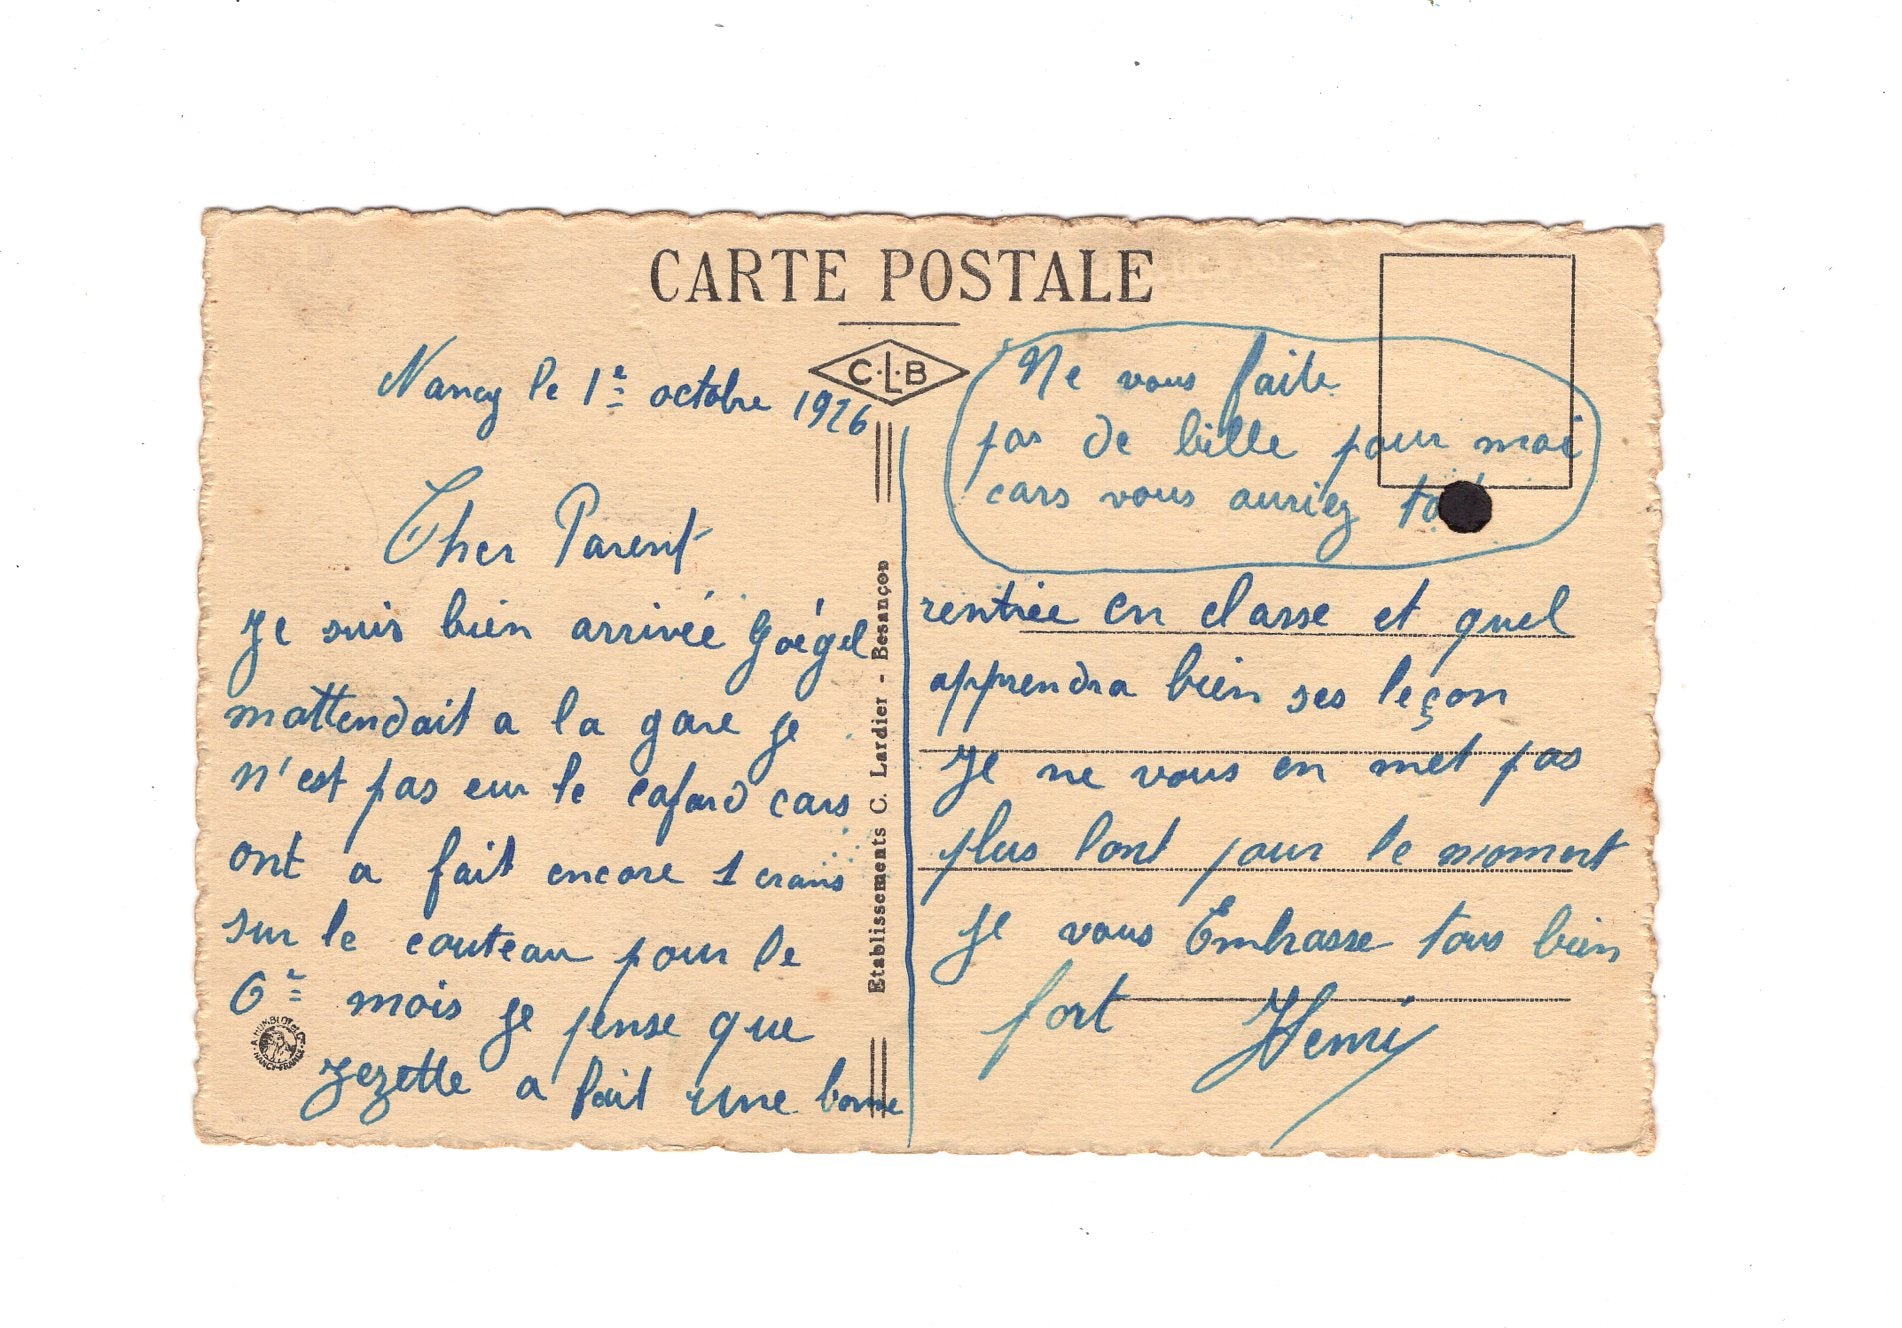 CARTE POSTALE
C.L.B
Nancy le 1e octobre 1926
Cher Parent
Je suis bien arrivée
mattendait a la gare je
n'est pas eur le cafard cars
ont a fait encore 1 crans
sur le couteau pour le
6e mois je pense que
Zezette a fait une bonne
A. HUMBLOT et Cie
NANCY-FRANCE
Etablissements C. Lardier - Besançon
Ne vous faite
pas de bille pour moi
cars vous auriez
rentrée en classe et quel
apprendra bien ses leçon
Je ne vous en met pas
plus lont pour le moment
Je vous Embrasse tous bien
fort Henri